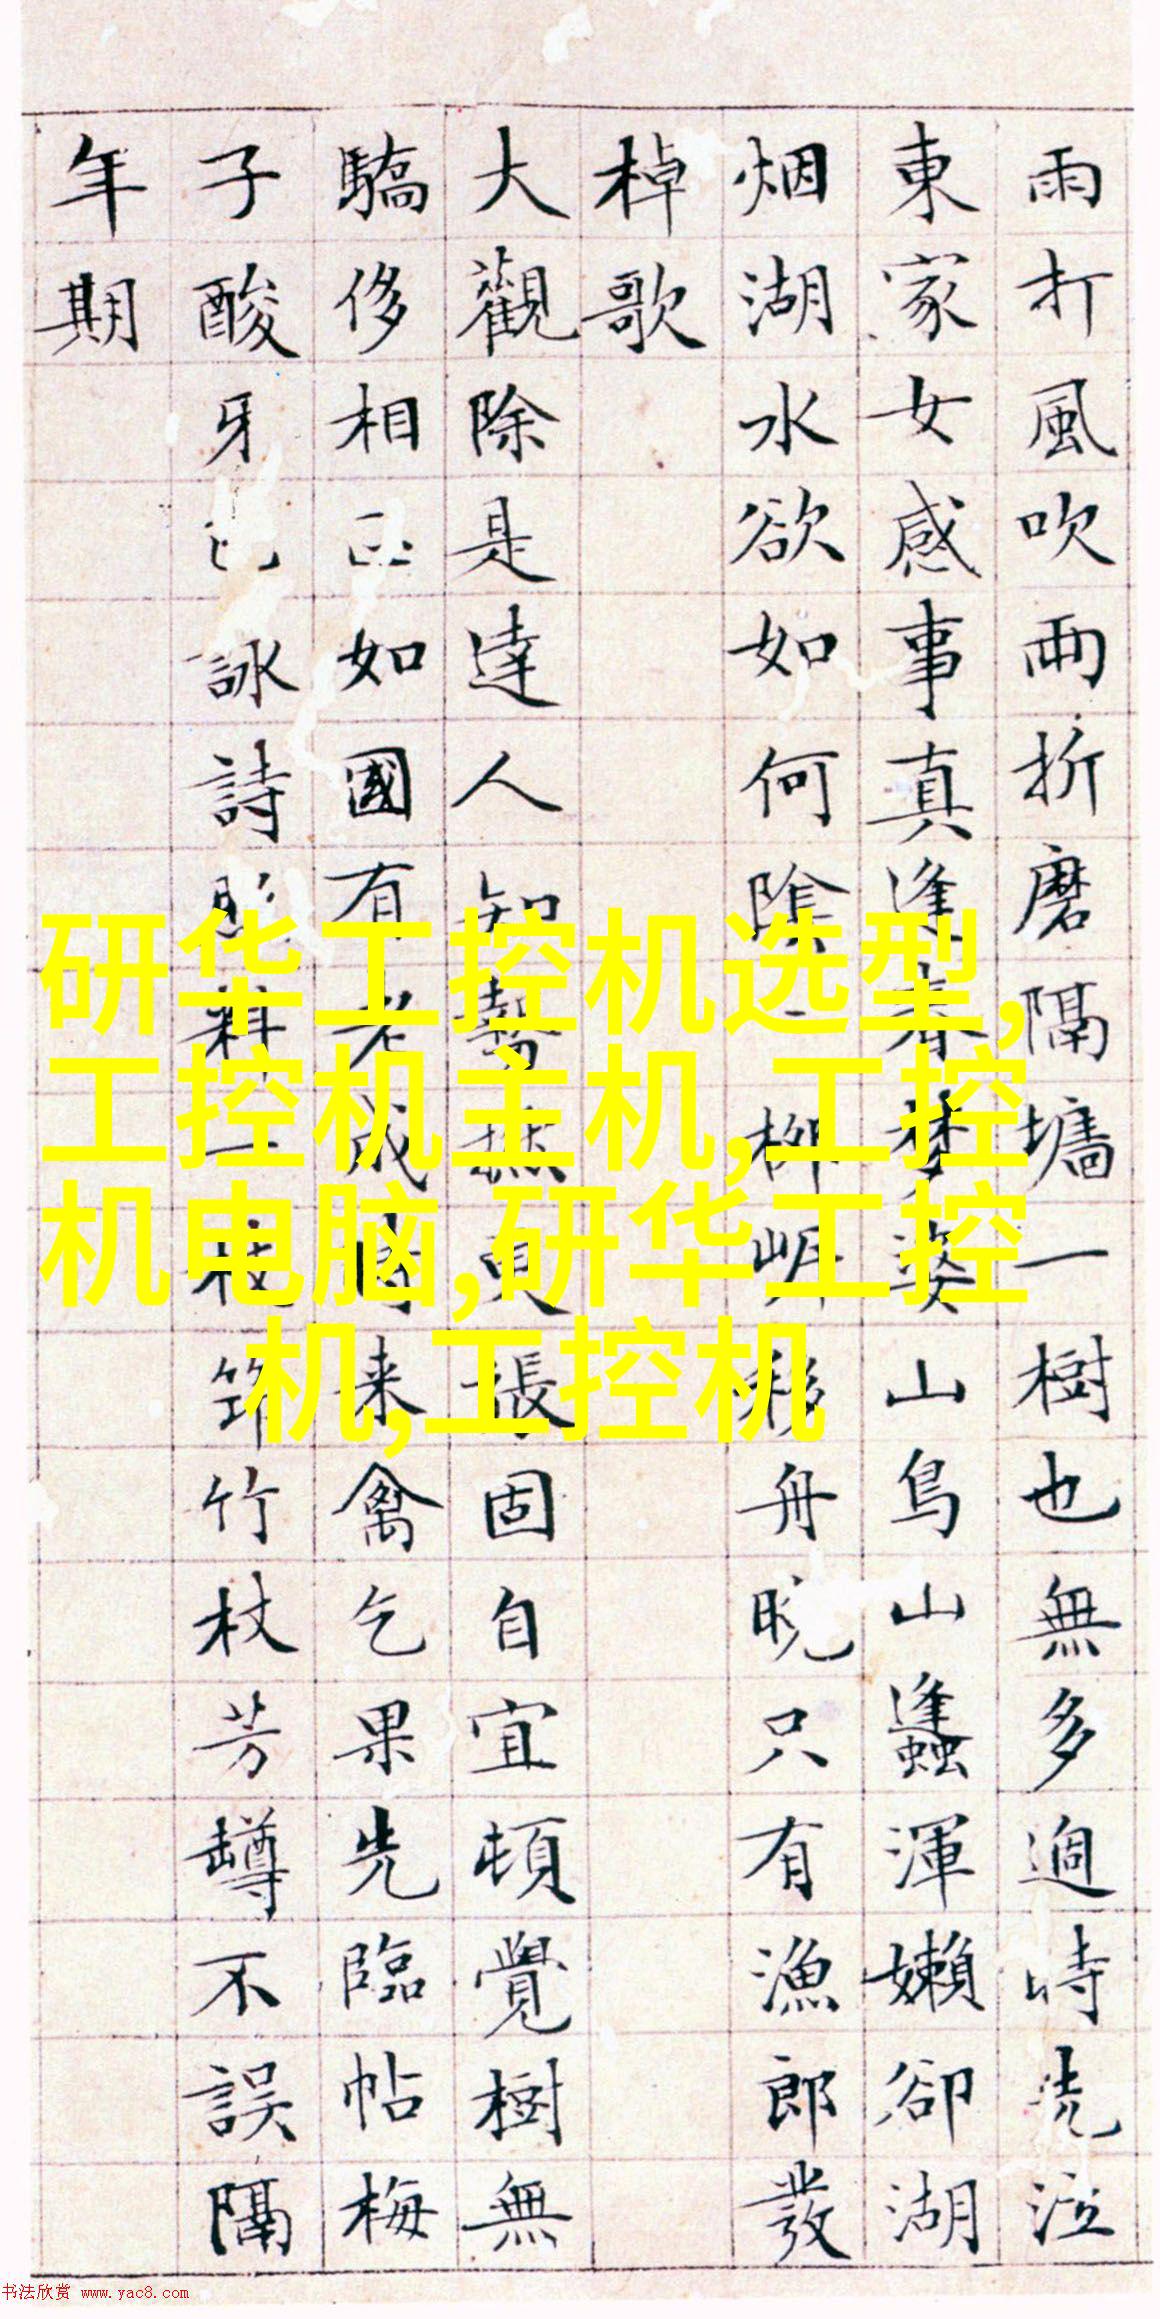 雨打風吹雨折磨隔墻一樹也無多過時洗泣
東家女感事真逢春夢婆山鳥山蠭渾嬾卻湖
烟湖水欲如何陰陰柳岸移舟晚只有漁郎發
棹歌
大觀除是達人知勢無更張固自宜頓覺樹無
驕侈相如國有老成時来禽乞果先臨帖梅
子酸牙詠詩料一枝筇竹杖芳罇不誤隔
年期
研华工控机选型,
工控机主机,工控
机电脑,研华工控
机,工控机
书法欣赏 www.yac8.com